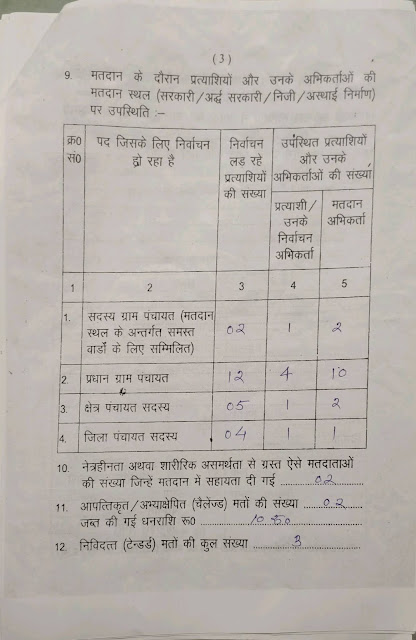 (3)
9. मतदान के दौरान प्रत्याशियों और उनके अभिकर्ताओं की
मतदान स्थल (सरकारी/अर्द्ध सरकारी/निजी/अस्थाई निर्माण)
पर उपस्थिति :–
क्र0 सं0 | पद जिसके लिए निर्वाचन हो रहा है | निर्वाचन लड़ रहे प्रत्याशियों की संख्या | उपस्थित प्रत्याशियों और उनके अभिकर्ताओं की संख्या
प्रत्याशी/उनके निर्वाचन अभिकर्ता | मतदान अभिकर्ता
1 | 2 | 3 | 4 | 5
1. सदस्य ग्राम पंचायत (मतदान
स्थल के अन्तर्गत समस्त | 02 | 1 | 2
वार्डों के लिए सम्मिलित)
2. प्रधान ग्राम पंचायत | 12 | 4 | 10
3. क्षेत्र पंचायत सदस्य | 05 | 1 | 2
4. जिला पंचायत सदस्य | 04 | 1 | 1
10. नेत्रहीनता अथवा शारीरिक असमर्थता से ग्रस्त ऐसे मतदाताओं
की संख्या जिन्हें मतदान में सहायता दी गई ..........02..........
11. आपत्तिकृत/अभ्याक्षेपित (चैलेंज्ड) मतों की संख्या ....02....
जब्त की गई धनराशि रू0
12. निविदत्त (टेन्डर्ड) मतों की कुल संख्या ..........3..........